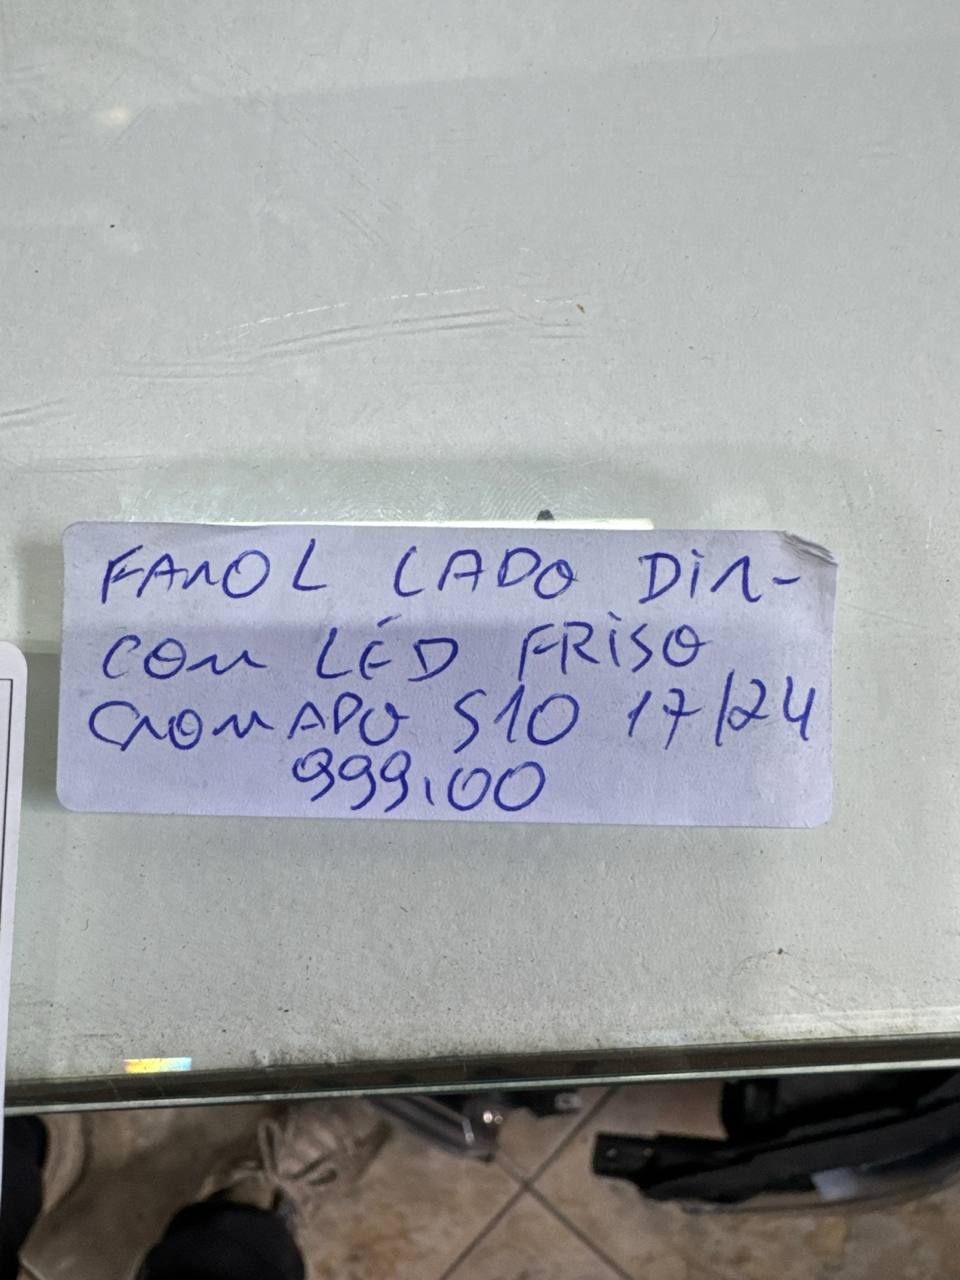 FAROL LADO DIR-
COM LÉD FRISO
CROMADO S10 17/24
999,00